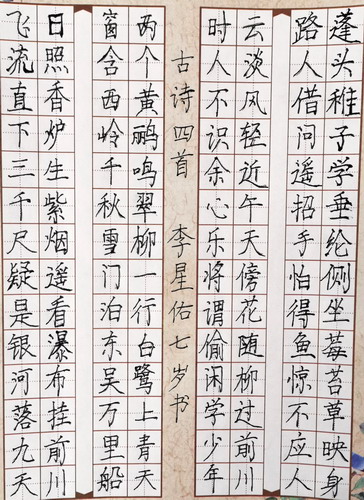 蓬头稚子学垂纶侧坐莓苔草映身
路人借问遥招手怕得鱼惊不应人
云淡风轻近午天傍花随柳过前川
时人不识余心乐将谓偷闲学少年
古诗四首 李星佑七岁书
两个黄鹂鸣翠柳一行白鹭上青天
窗含西岭千秋雪门泊东吴万里船
日照香炉生紫烟遥看瀑布挂前川
飞流直下三千尺疑是银河落九天